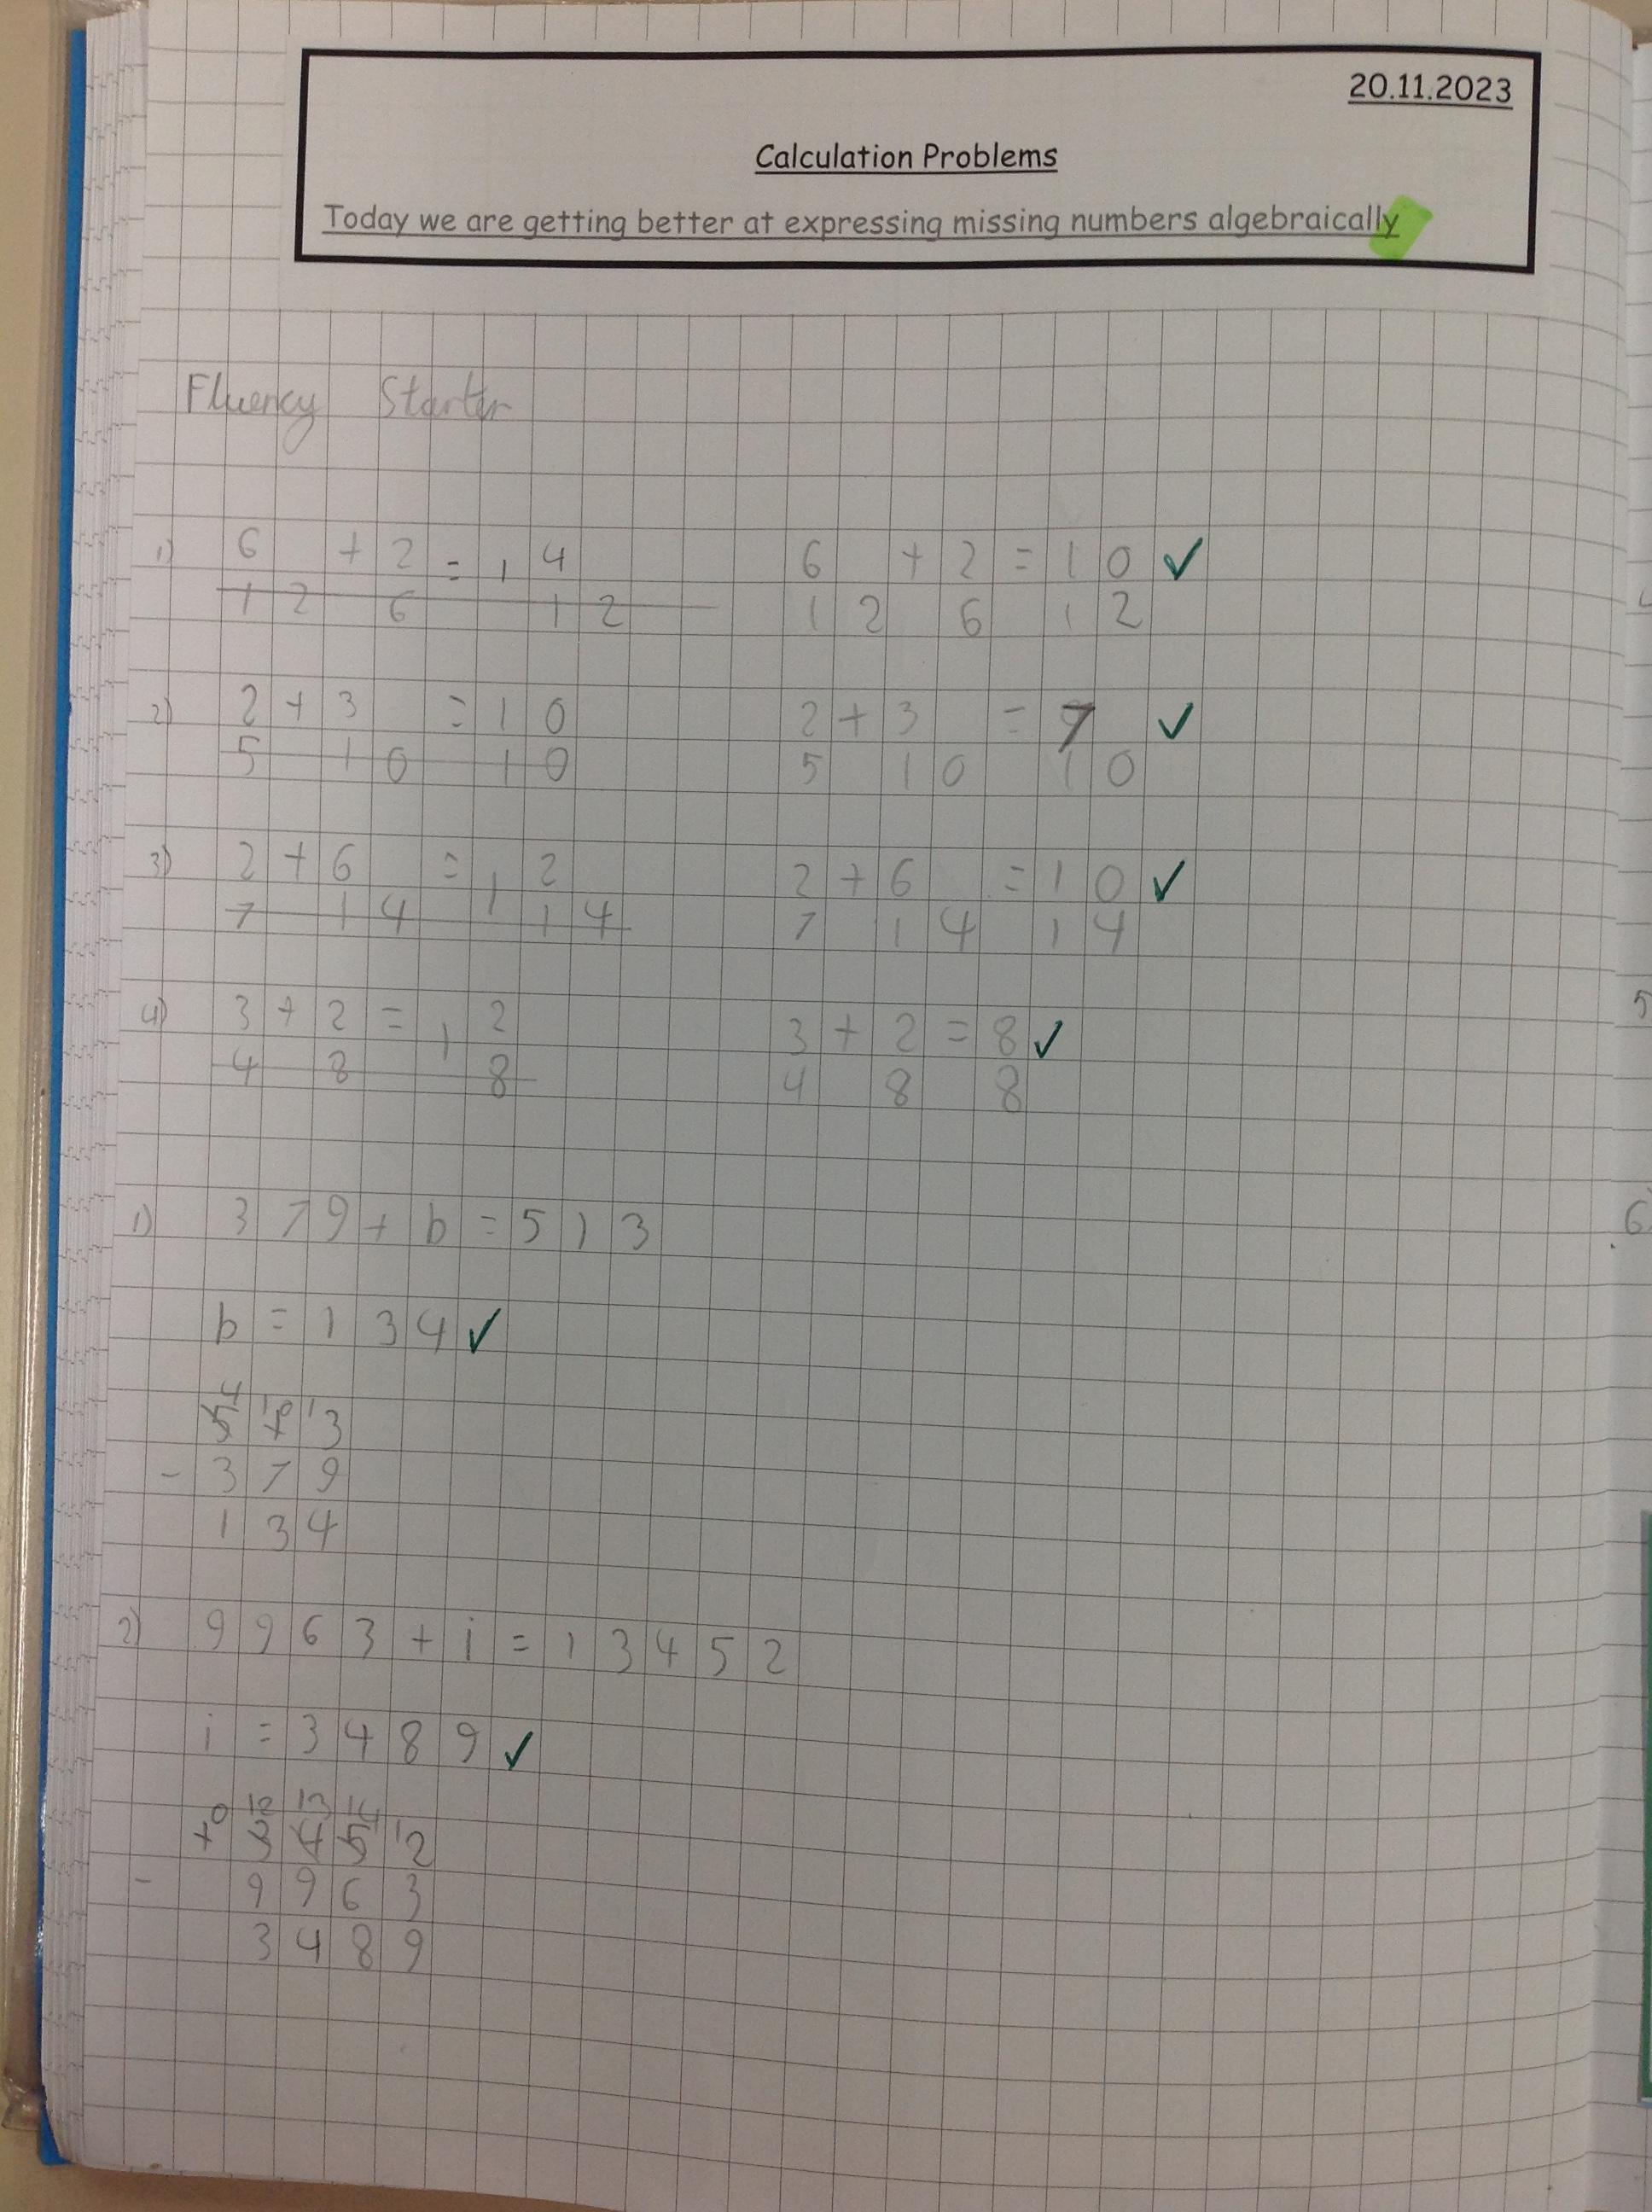 20.11.2023
Calculation Problems
Today we are getting better at expressing missing numbers algebraically
Fluency Starter
1) 6 + 2 = 1 4 6 + 2 = 10 ✓
12 6 12 12 6 12
2) 2 + 3 = 10 2 + 3 = 7 ✓
5 10 10 5 10 10
3) 2 + 6 = 1 2 2 + 6 = 10 ✓
7 14 14 7 14 14
4) 3 + 2 = 1 2 3 + 2 = 8 ✓
4 8 8 4 8 8
1) 379 + b = 513
b = 134 ✓
4 10 1
513
- 379
134
2) 9963 + i = 13452
i = 3489 ✓
0 12 13 14 1
13452
- 9963
3489
5
6